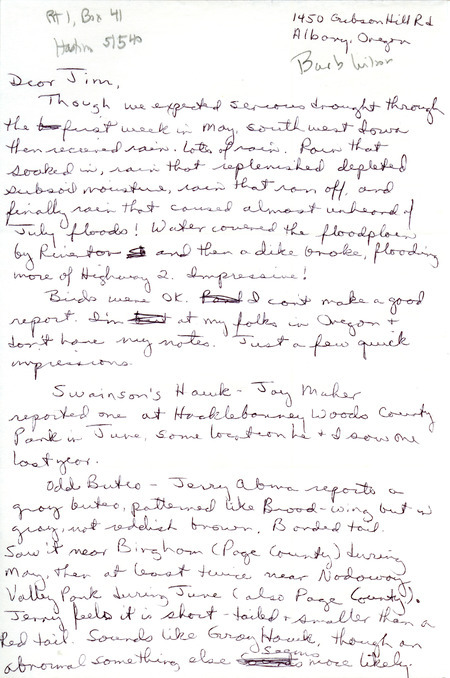 Rt 1, Box 41
Hastings 51540
1450 Gibson Hill Rd
Albany, Oregon
Barb Wilson
Dear Jim,
Though we expected serious drought through
the first week in May, southwest Iowa
then received rain. Lots of rain. Rain that
soaked in, rain that replenished depleted
subsoil moisture, rain that ran off, and
finally rain that caused almost unheard of
July floods! Water covered the floodplain
by Riverton and then a dike broke, flooding
more of Highway 2. Impressive!
Birds were OK. I can't make a good
report. I'm at my folks in Oregon +
don't have my notes. Just a few quick
impressions.
Swainson's Hawk - Jay Maher
reported one at Hacklebarney Woods County
Park in June, same location he + I saw one
last year.
Odd Buteo - Jerry Abma reports a
gray buteo, patterned like Broad-wing but in
gray, not reddish brown. Banded tail.
Saw it near Bingham (Page County) during
May, then at least twice near Nodaway
Valley Park during June (also Page County).
Jerry feels it is short-tailed + smaller than a
Red tail. Sounds like Gray Hawk, though an
abnormal something else seems more likely.